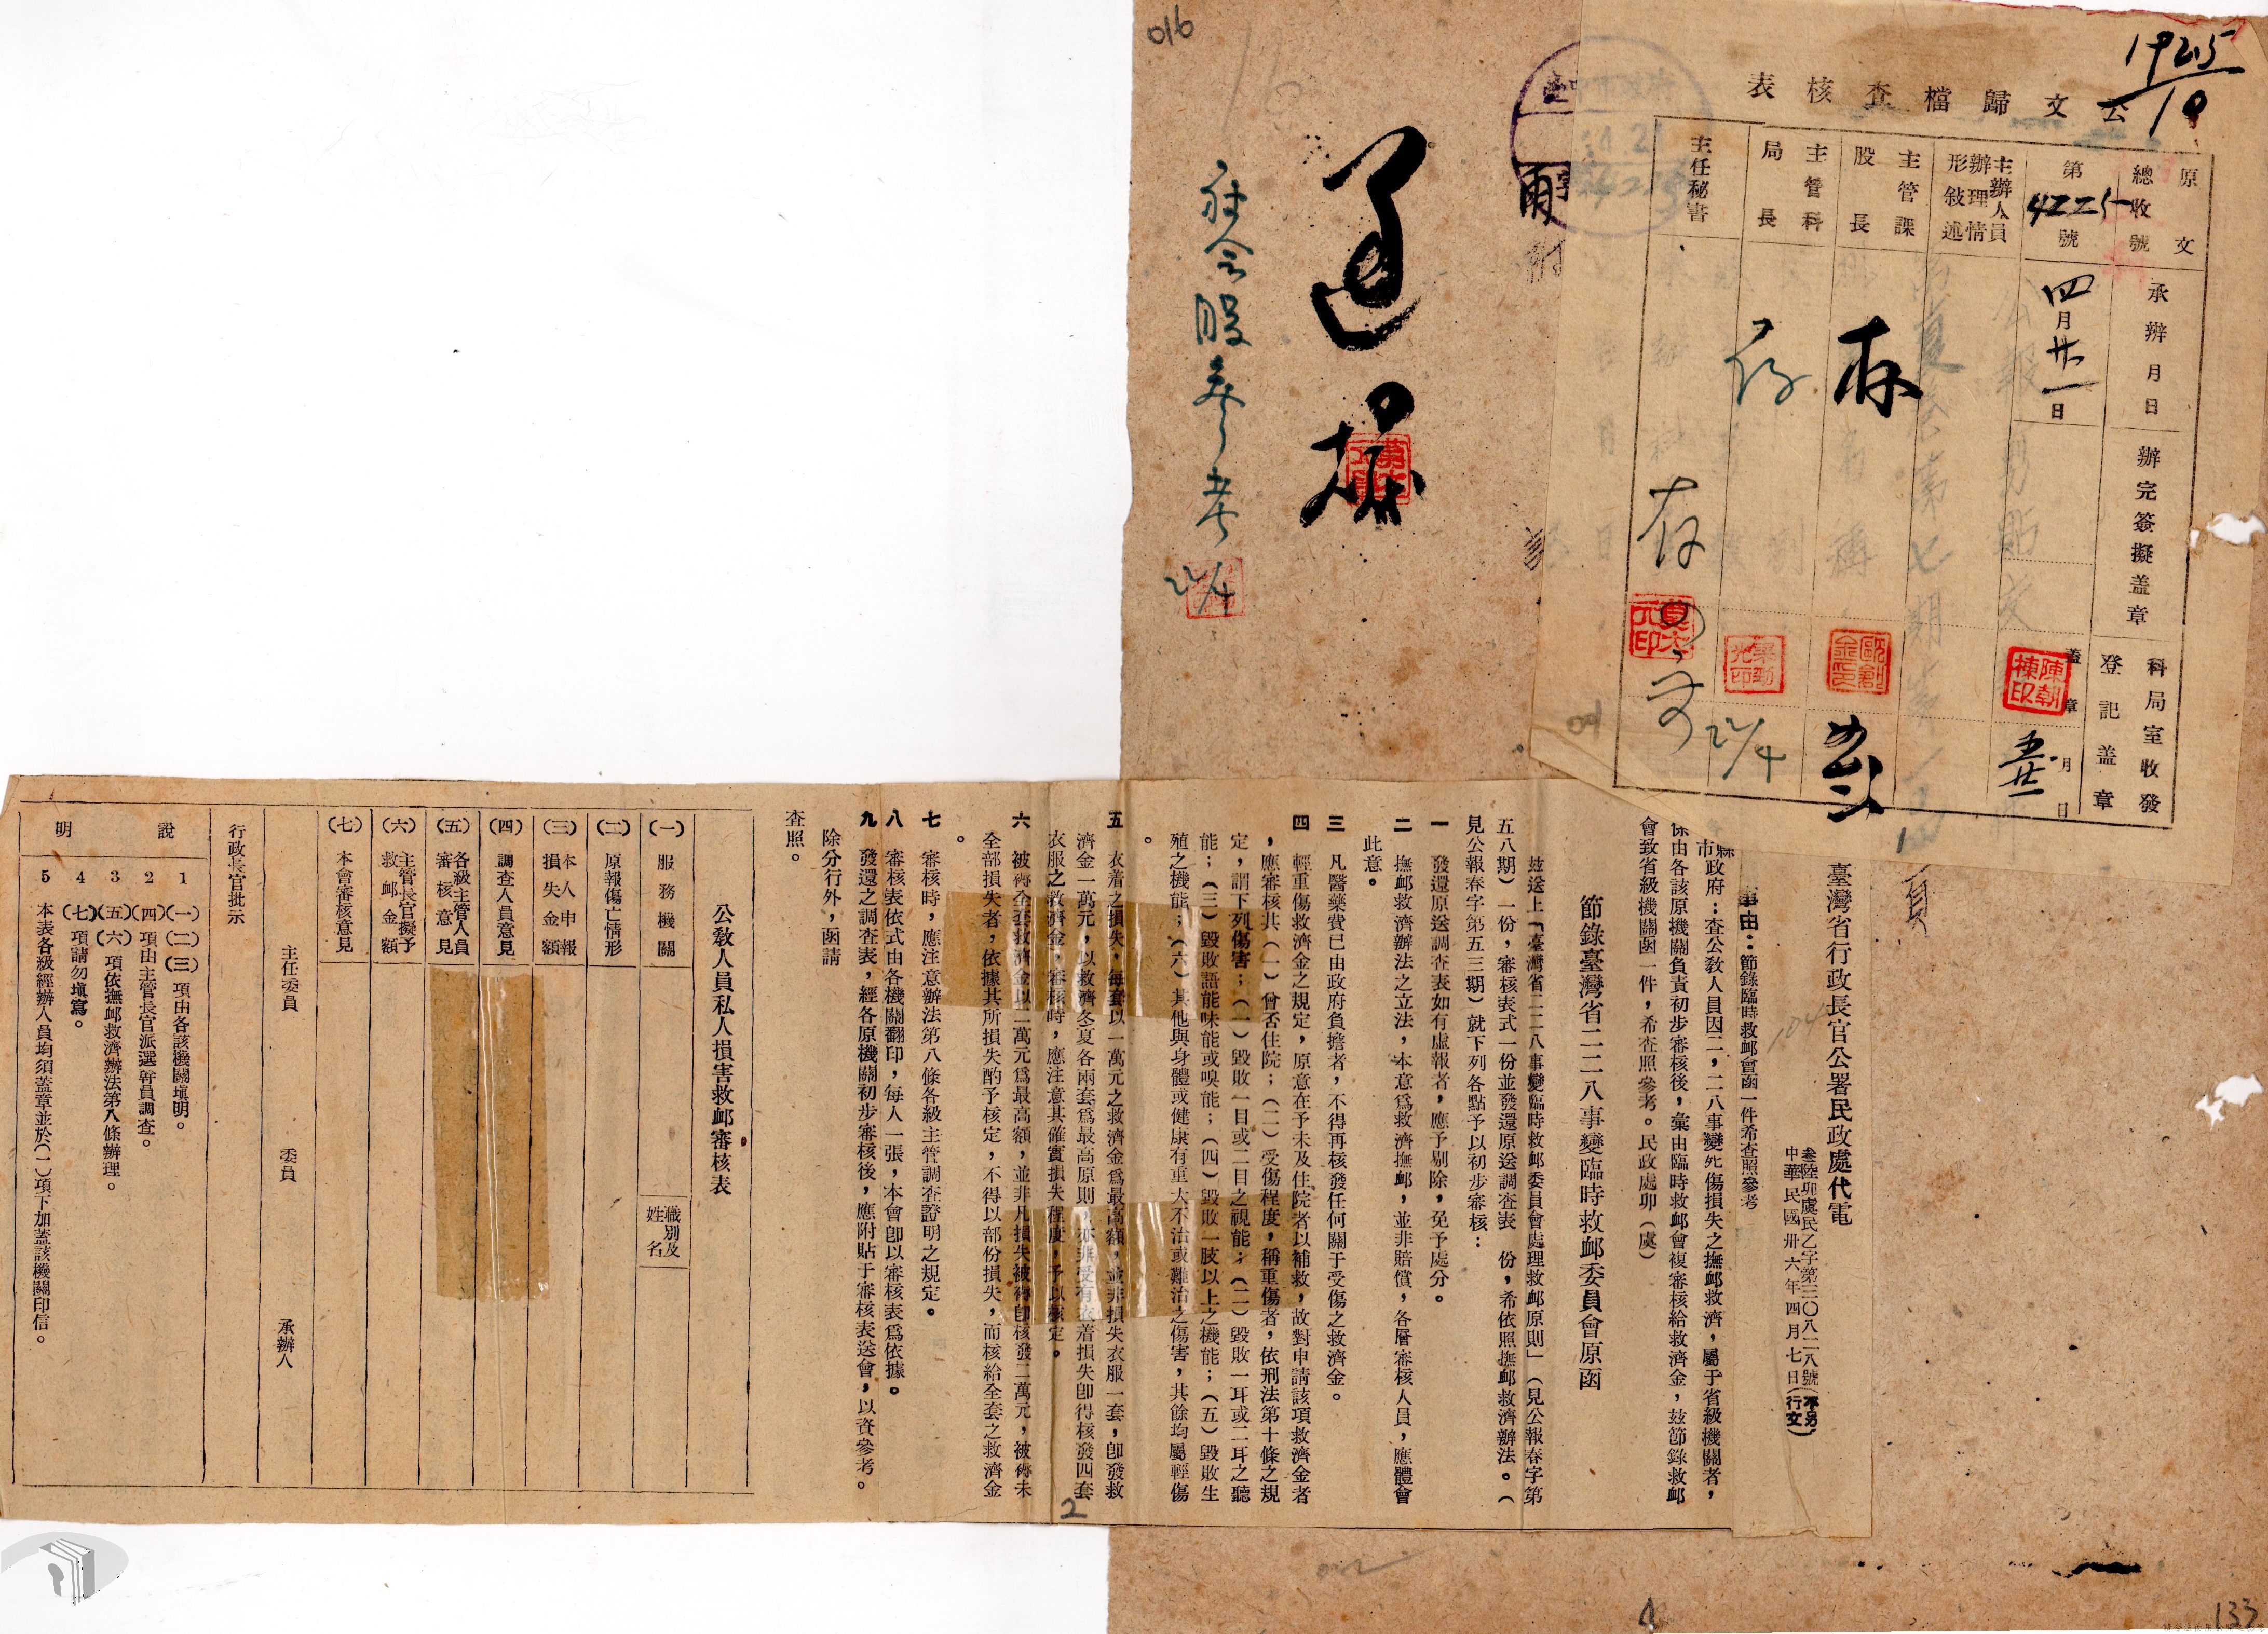 1925
10
公文歸檔查核表
原文
總收號
第4225號
承辦月日
四月廿一日
辦完簽擬蓋章
科局室收發
登記蓋章
蓋章
月日
陳朝棟印
主辦人員
辦理情
形敍述
主管課
股長
存
主管科
局長
存
22/4
主任秘書
存
社會股參考
22/4
016
臺灣省行政長官公署民政處代電
叁陸卯虞民乙字第三〇八二八號(不另
中華民國卅六年四月七日(行文)
事由:節錄臨時救邮會函一件希查照參考
縣市政府:查公教人員因二,二八事變死傷損失之撫邮救濟,屬于省級機關者,
係由各該原機關負責初步審核後,棄由臨時救邮會複審核給救濟金,玆節錄救邮
會致省級機關函一件,希查照參考。民政處卯(虞)
節錄臺灣省二二八事變臨時救邮委員會原函
玆送上「臺灣省二二八事變臨時救邮委員會處理救邮原則」(見公報春字第
五八期)一份,審核表式一份並發還原送調查表 份,希依照撫邮救濟辦法。(
見公報春字第五三期)就下列各點予以初步審核:
一 發還原送調查表如有虛報者,應予剔除,免予處分。
二 撫邮救濟辦法之立法,本意爲救濟撫邮,並非賠償,各層審核人員,應體會
此意。
三 凡醫藥費已由政府負擔者,不得再核發任何關于受傷之救濟金。
四 輕重傷救濟金之規定,原意在予未及住院者以補救,故對申請該項救濟金者
,應審核其(一)曾否住院;(二)受傷程度,稱重傷者,依刑法第十條之規
定,謂下列傷害;(一)毀敗一目或二目之視能;(二)毀敗一耳或二耳之聽
能;(三)毀敗語能味能或嗅能;(四)毀敗一肢以上之機能;(五)毀敗生
殖之機能;(六)其他與身體或健康有重大不治或難治之傷害,其餘均屬輕傷
。
五 衣着之損失,每套以一萬元之救濟金爲最高額,並非損失衣服一套,卽發救
濟金一萬元,以救濟冬夏各兩套爲最高原則,亦非受有衣着損失卽得核發四套
衣服之救濟金,審核時,應注意其確實損失程度,予以核定。
六 被褥全套救濟金以二萬元爲最高額,並非凡損失被褥卽核發二萬元,被褥未
全部損失者,依據其所損失酌予核定,不得以部份損失,而核給全套之救濟金
。
七 審核時,應注意辦法第八條各級主管調查證明之規定。
八 審核表依式由各機關翻印,每人一張,本會卽以審核表爲依據。
九 發還之調查表,經各原機關初步審核後,應附貼于審核表送會,以資參考。
除分行外,函請
查照。
公敎人員私人損害救邮審核表
(一) 服務機關
職別及
姓名
(二) 原報傷亡情形
(三) 本人申報
損失金額
(四) 調查人員意見
(五) 各級主管人員
審核意見
(六) 主管長官擬予
救邮金額
(七) 本會審核意見
主任委員 委員 承辦人
行政長官批示
說明
1 (一)(二)(三)項由各該機關塡明。
2 (四)項由主管長官派選幹員調查。
3 (五)(六)項依撫邮救濟辦法第八條辦理。
4 (七)項請勿塡寫。
5 本表各級經辦人員均須蓋章並於(一)項下加蓋該機關印信。
2
133